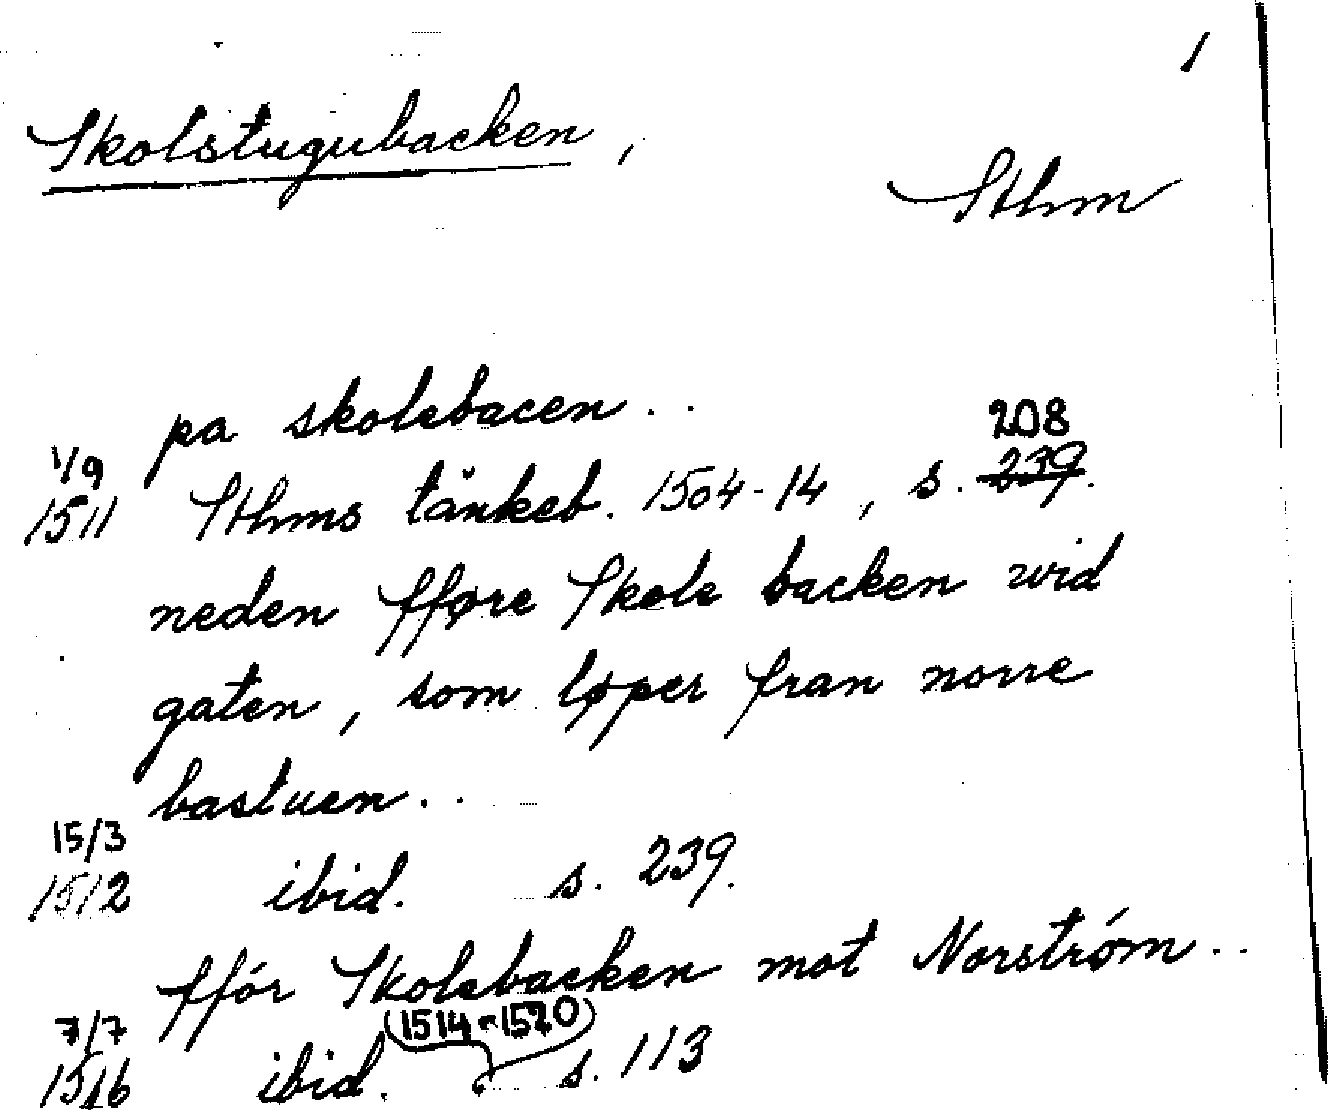 1
Skolstugubacken,
Sthm
pa skolebacen..
208
1/9
1511 Sthms tänkeb. 1504-14, s. 239.
neden fføre Skole backen wid
gaten, som løper fran norre
bastuen..
15/3
1512 ibid. s. 239.
ffór Skolebacken mot Norstróm..
7/7 (1514-1520)
1516 ibid. s. 113